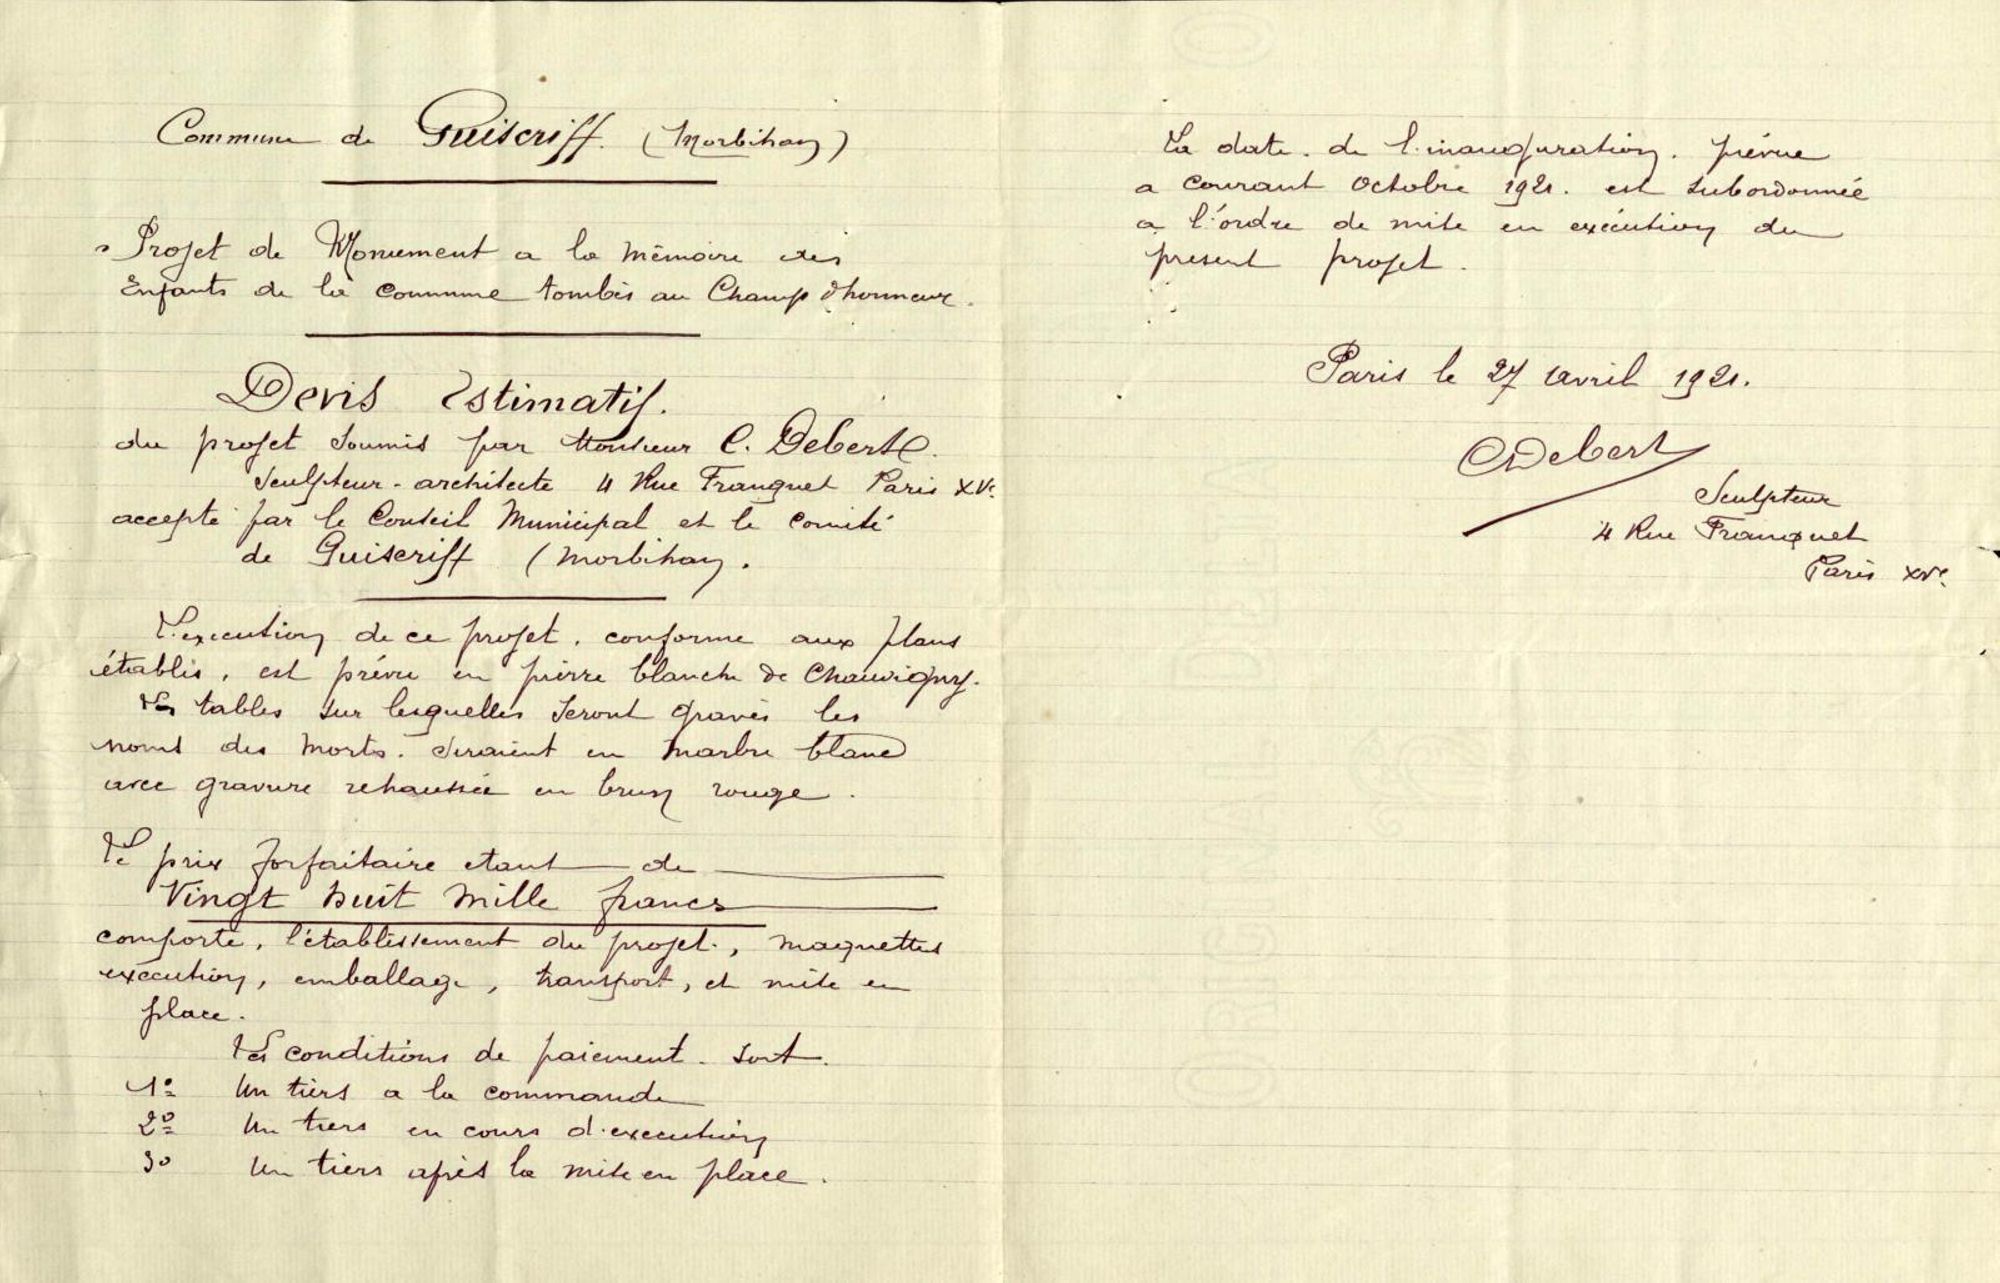 Commune de Guiscriff. (Morbihan)
Projet de Monument a la mémoire des
Enfants de la commune tombés au Champ d'honneur.
Devis Estimatif.
du projet soumis par Monsieur C. Debert.
Sculpteur-architecte 4 Rue Franquet Paris XVe
accepté par le Conseil Municipal et le comité
de Guiscriff (Morbihan.
L'execution de ce projet. conforme aux plans
établis, est prévu en pierre blanche de Chauvigny.
Les tables sur lesquelles seront gravés les
noms des morts. seraient en marbre blanc
avec gravure rehaussée en brun rouge.
Le prix forfaitaire etant de
Vingt huit mille francs
comporte, l'établissement du projet, maquettes
exécution, emballage, transport, et mise en
place.
Les conditions de paiement. sont.
1º Un tiers a la commande
2º Un tiers en cours d'execution
3º Un tiers après la mise en place.
La date. de l'inauguration. prévue
a courant Octobre 1921. est subordonnée
a l'ordre de mise en exécution du
present projet.
Paris le 27 avril 1921.
CDebert
Sculpteur
4 Rue Franquet
Paris XVe